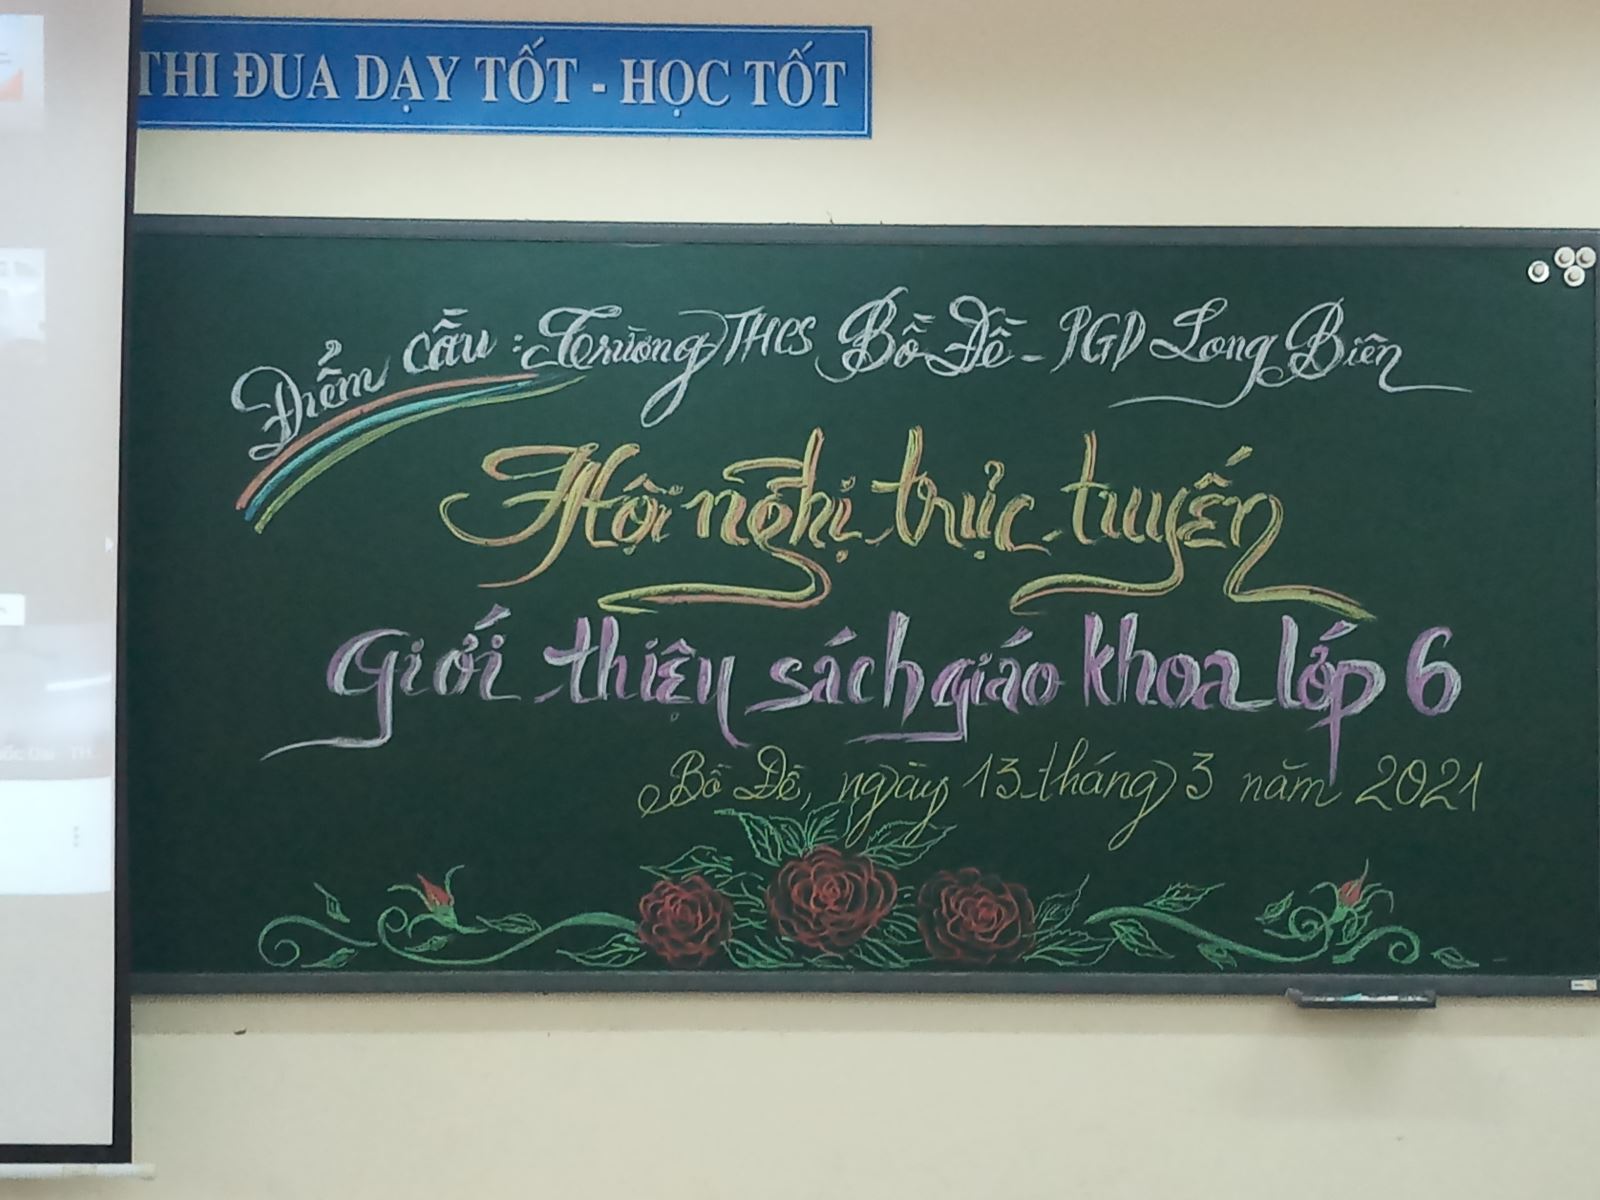 THI ĐUA DẠY TỐT - HỌC TỐT
Điểm cầu : Trường THCS Bồ Đề - PGD Long Biên
Hội nghị trực tuyến
Giới thiệu sách giáo khoa lớp 6
Bồ Đề, ngày 13 tháng 3 năm 2021